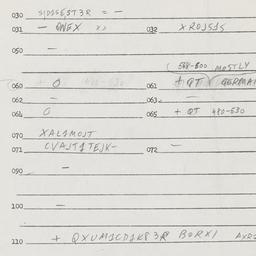 030 S1DSEST3R = -
031 - QWEX >> 032 XROJS1S
050 -
( 588-600 MOSTLY
060 O 061 + QT GERMA
062 - 063 -
064 O 065 + QT 480-530
070 XAL1MOJT
071 CVAJT1TEJK- 072 -
090 -
100 -
110 + QXUM1CD1K8 3R BORX1 AXR